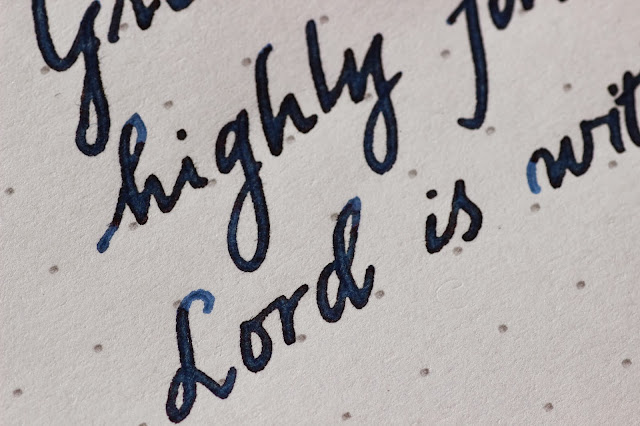 highly
Lord is wit